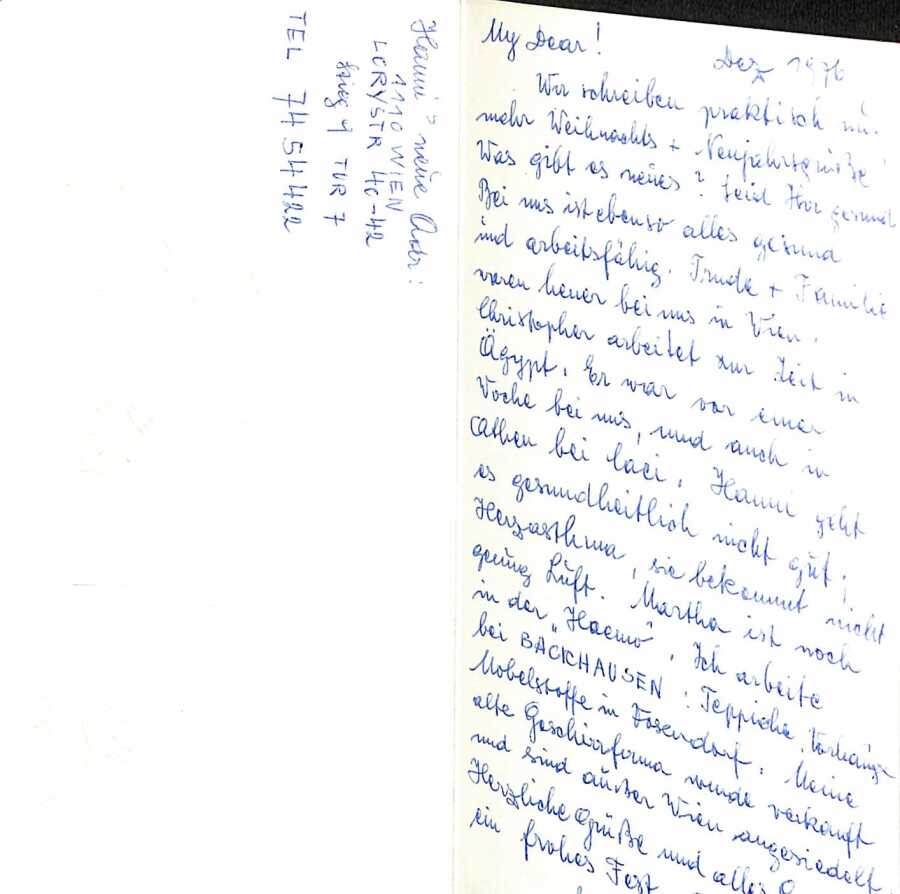 Hanni's neue Adr:
1110 WIEN
LORYSTR 40-42
Stieg 4 TÜR 7
TEL 7454422
My Dear!
Dez 1976
Wir schreiben praktisch nur
mehr Weihnachts + Neujahrsgrüße
Was gibt es neues? Seid Ihr gesund
Bei uns ist ebenso alles gesund
und arbeitsfähig. Trude + Familie
waren heuer bei uns in Wien.
Christopher arbeitet zur Zeit in
Ägypt. Er war vor einer
Woche bei uns, und auch in
Athen bei Laci. Hanni geht
es gesundheitlich nicht gut!
Herzasthma, sie bekommt nicht
genug Luft. Martha ist noch
in der "Haemo". Ich arbeite
bei BACKHAUSEN: Teppiche, Vorhänge
Möbelstoffe in Vösendorf. Meine
alte Geschirrfirma wurde verkauft
und sind außer Wien angesiedelt.
Herzliche Grüße und alles
ein frohes Fest